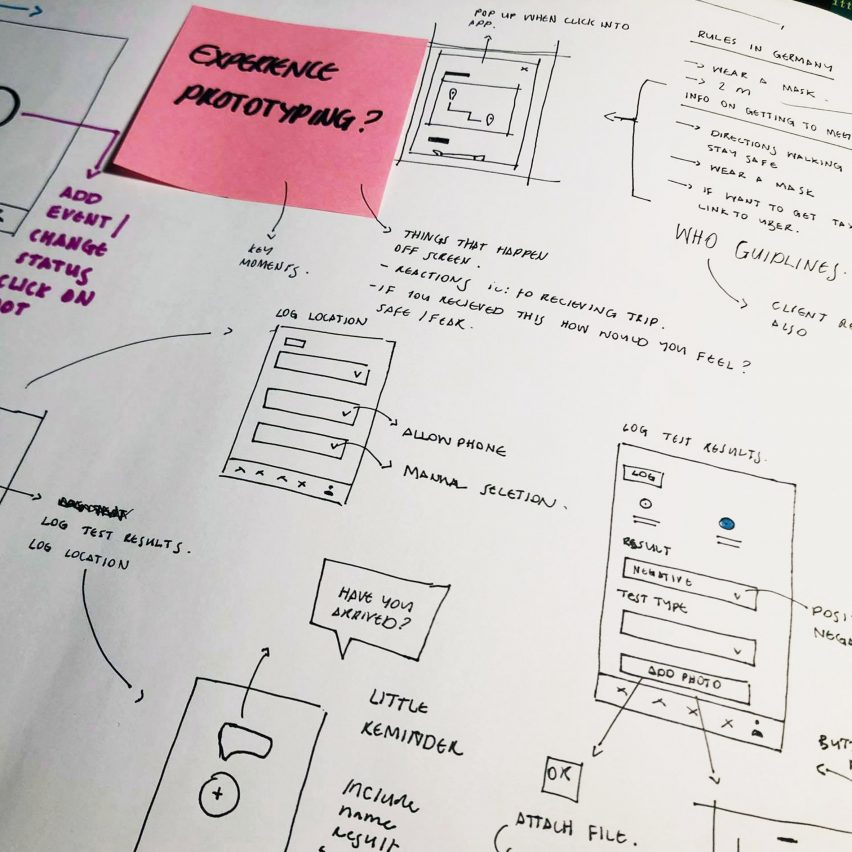 EXPERIENCE
PROTOTYPING?
POP UP WHEN CLICK INTO
APP.
RULES IN GERMANY
→ WEAR A MASK.
→ 2 M
INFO ON GETTING TO MEET
→ DIRECTIONS WALKING
STAY SAFE
→ WEAR A MASK
→ IF WANT TO GET TAX
LINK TO UBER.
WHO GUIDLINES.
CLIENT RE
ALSO
ADD
EVENT/
CHANGE
STATUS
CLICK ON
KEY
MOMENTS.
THINGS THAT HAPPEN
OFF SCREEN.
- REACTIONS ie: to RECIEVING TRIP.
- IF YOU RECIEVED THIS HOW WOULD YOU FEEL?
SAFE / FEAR.
LOG LOCATION
ALLOW PHONE
MANUAL SELETION.
LOG TEST RESULTS.
LOG LOCATION
LOG TEST RESULTS.
LOG
RESULT
NEGATIVE
TEST TYPE
ADD PHOTO
POSI
NEGA
HAVE YOU
ARRIVED?
LITTLE
REMINDER
INCLUDE
NAME
RESULT
OK
ATTACH FILE.
BUTT